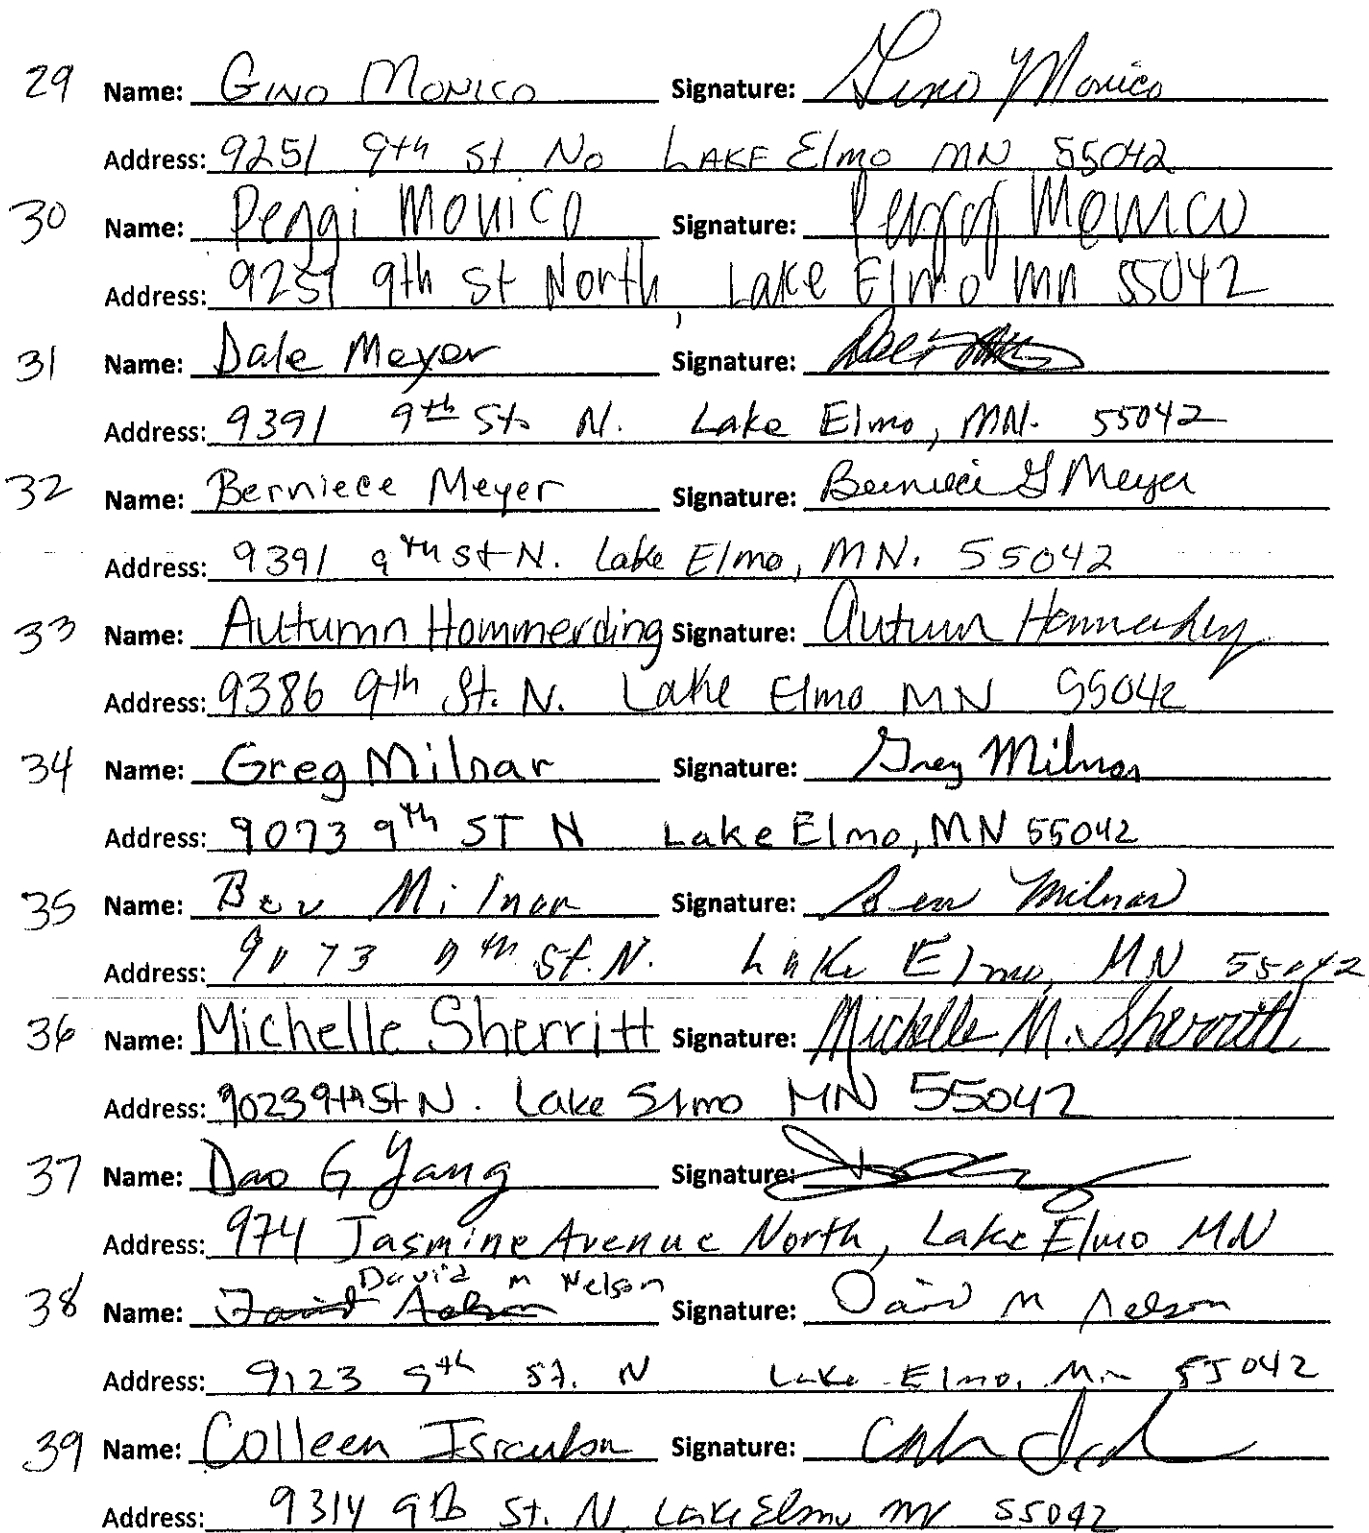 29 Name: GINO MONICO Signature: Gino Monico
Address: 9251 9th St No LAKE Elmo MN 55042
30 Name: Peggi Monico Signature: Peggy Monico
Address: 9251 9th St North, Lake Elmo Mn 55042
31 Name: Dale Meyer Signature:
Address: 9391 9th St. N. Lake Elmo, MN. 55042
32 Name: Berniece Meyer Signature: Berniece G Meyer
Address: 9391 9th St N. Lake Elmo, MN. 55042
33 Name: Autumn Hommerding Signature: Autumn Hommerding
Address: 9386 9th St. N. Lake Elmo MN 55042
34 Name: Greg Milnar Signature: Greg Milnar
Address: 9073 9th ST N Lake Elmo, MN 55042
35 Name: Bev Milnar Signature: Bev Milnar
Address: 9073 9th St. N. Lake Elmo, MN 55042
36 Name: Michelle Sherritt Signature: Michelle M. Sherritt
Address: 9023 9th St N. Lake Elmo MN 55042
37 Name: Dao G Yang Signature:
Address: 974 Jasmine Avenue North, Lake Elmo MN
David M Nelson
38 Name: David Nelson Signature: David M Nelson
Address: 9123 9th St. N Lake Elmo, Mn 55042
39 Name: Colleen Signature:
Address: 9314 9th St. N. Lake Elmo MN 55042